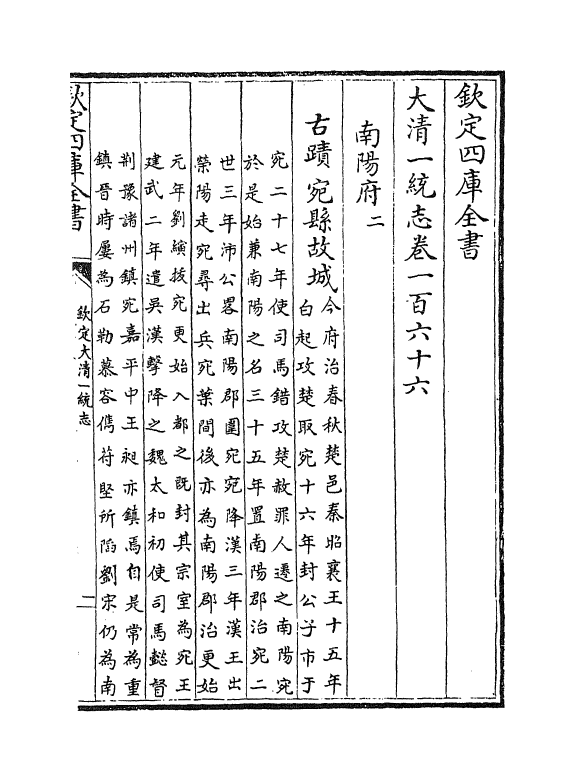 欽定四庫全書
大清一統志卷一百六十六
南陽府二
古蹟宛縣故城
今府治春秋楚邑秦昭襄王十五年
白起攻楚取宛十六年封公子市于
宛二十七年使司馬錯攻楚赦罪人遷之南陽宛
於是始兼南陽之名三十五年置南陽郡治宛二
世三年沛公畧南陽郡圍宛宛降漢三年漢王出
滎陽走宛尋出兵宛葉間後亦為南陽郡治更始
元年劉縯拔宛更始入都之既封其宗室為宛王
建武二年遣吳漢擊降之魏太和初使司馬懿督
荆豫諸州鎮宛嘉平中王昶亦鎮焉自是常為重
鎮晉時屢為石勒慕容儁苻堅所陷劉宋仍為南
欽定四庫全書
欽定大清一統志
二